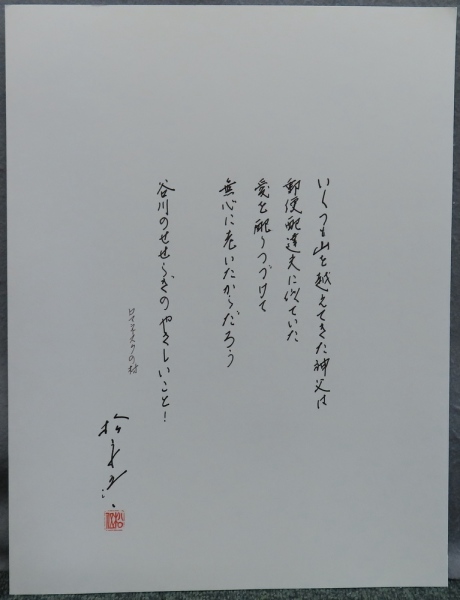 いくつも山を越えてきた神父は
郵便配達夫に似ていた
愛を配りつづけて
無心に老いたからだろう
谷川のせせらぎのやさしいこと!
ロマネスクの村